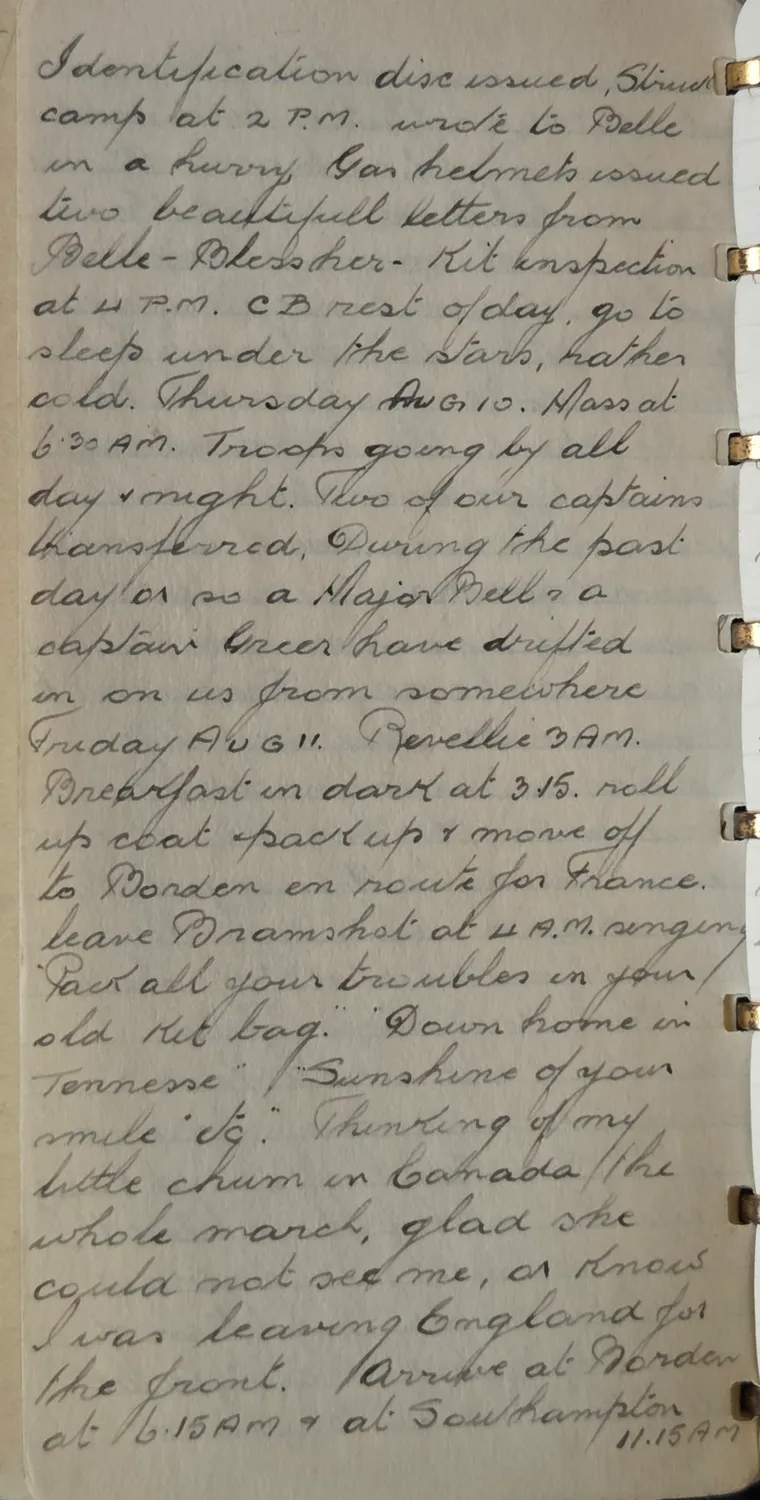 Identification disc issued, Struck
camp at 2 P.M. wrote to Belle
in a hurry, Gas helmets issued
two beautifull letters from
Belle - Bless her - Kit inspection
at 4 P.M. CB rest of day, go to
sleep under the stars, rather
cold. Thursday AUG 10. Mass at
6.30 AM. Troops going by all
day & night. Two of our captains
transferred, During the past
day or so a Major Bell & a
captain Greer have drifted
in on us from somewhere
Friday AUG 11. Revellie 3 AM.
Breakfast in dark at 3.15. roll
up coat & pack up & move off
to Borden en route for France.
leave Bramshot at 4 A.M. singing
"Pack all your troubles in your
old Kit bag." "Down home in
Tennesse" "Sunshine of your
smile" etc." Thinking of my
little chum in Canada the
whole march, glad she
could not see me, or know
I was leaving England for
the front. Arrive at Borden
at 6.15 AM & at Southampton
11.15 AM